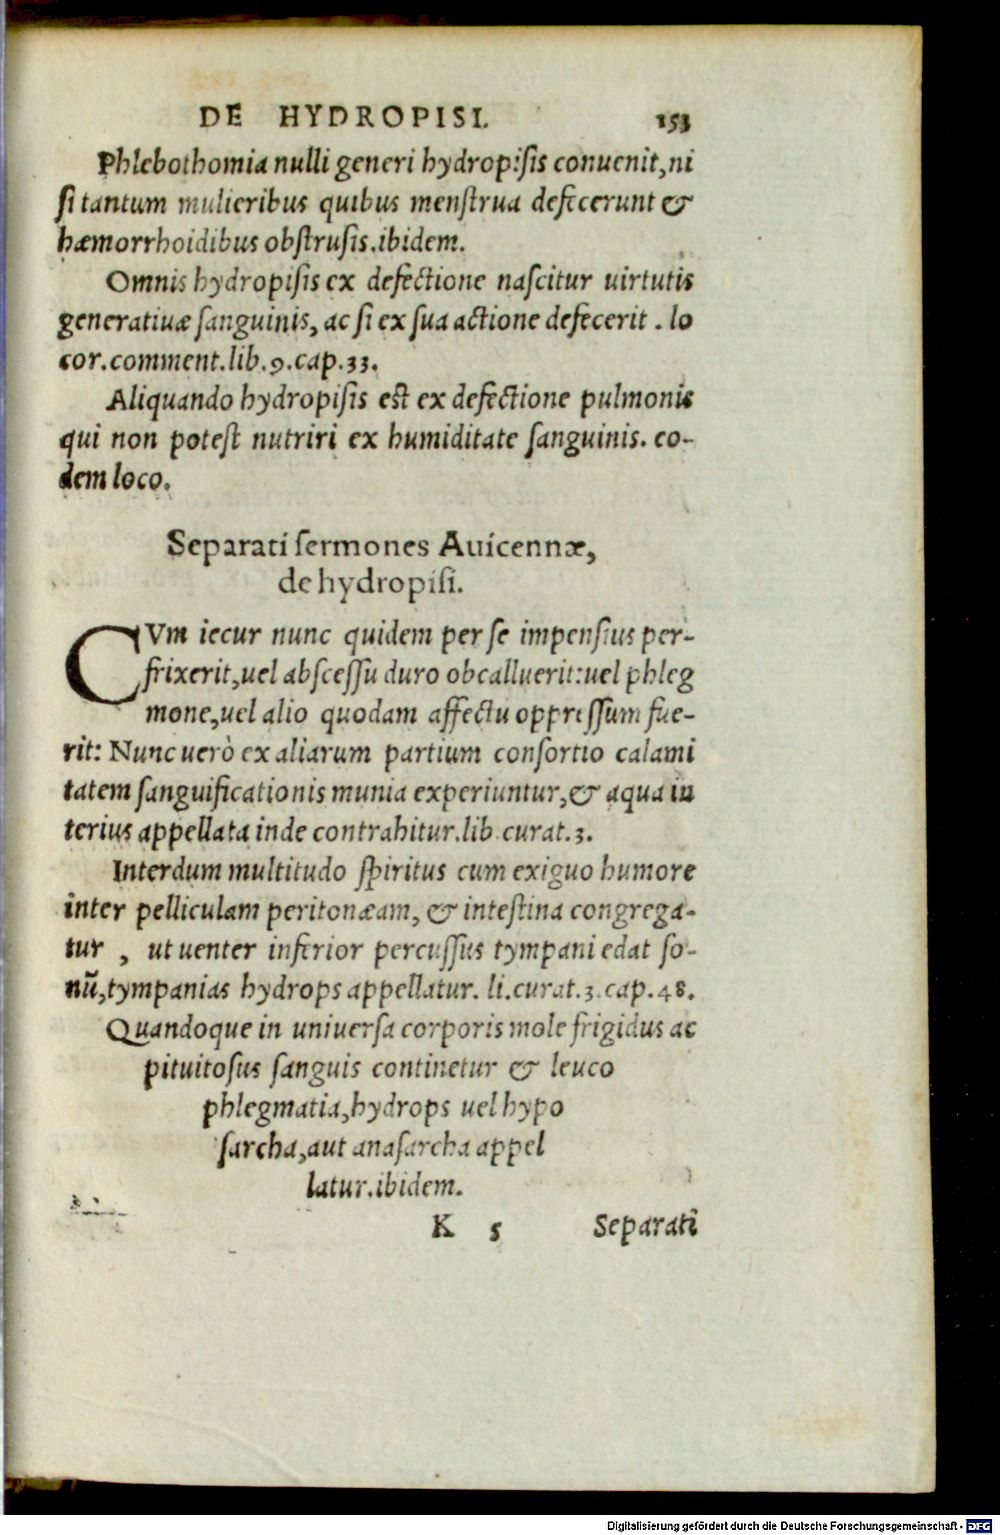 DE HYDROPISI. 153
Phlebothomia nulli generi hydropisis conuenit, ni
si tantum mulieribus quibus menstrua defecerunt &
hæmorrhoidibus obstrusis. ibidem.
Omnis hydropisis ex defectione nascitur uirtutis
generatiuæ sanguinis, ac si ex sua actione defecerit. lo
cor. comment. lib. 9. cap. 33.
Aliquando hydropisis est ex defectione pulmonis
qui non potest nutriri ex humiditate sanguinis. eo-
dem loco.
Separati sermones Auicennæ,
de hydropisi.
CVm iecur nunc quidem per se impensius per-
frixerit, uel abscessu duro obcalluerit: uel phleg
mone, uel alio quodam affectu oppressum fue-
rit: Nunc uerò ex aliarum partium consortio calami
tatem sanguificationis munia experiuntur, & aqua in
terius appellata inde contrahitur. lib. curat. 3.
Interdum multitudo spiritus cum exiguo humore
inter pelliculam peritonæam, & intestina congrega-
tur, ut uenter inferior percussus tympani edat so-
nũ, tympanias hydrops appellatur. li. curat. 3. cap. 48.
Quandoque in uniuersa corporis mole frigidus ac
pituitosus sanguis continetur & leuco
phlegmatia, hydrops uel hypo
sarcha, aut anasarcha appel
latur. ibidem.
K 5 Separati
Digitalisierung gefördert durch die Deutsche Forschungsgemeinschaft - DFG